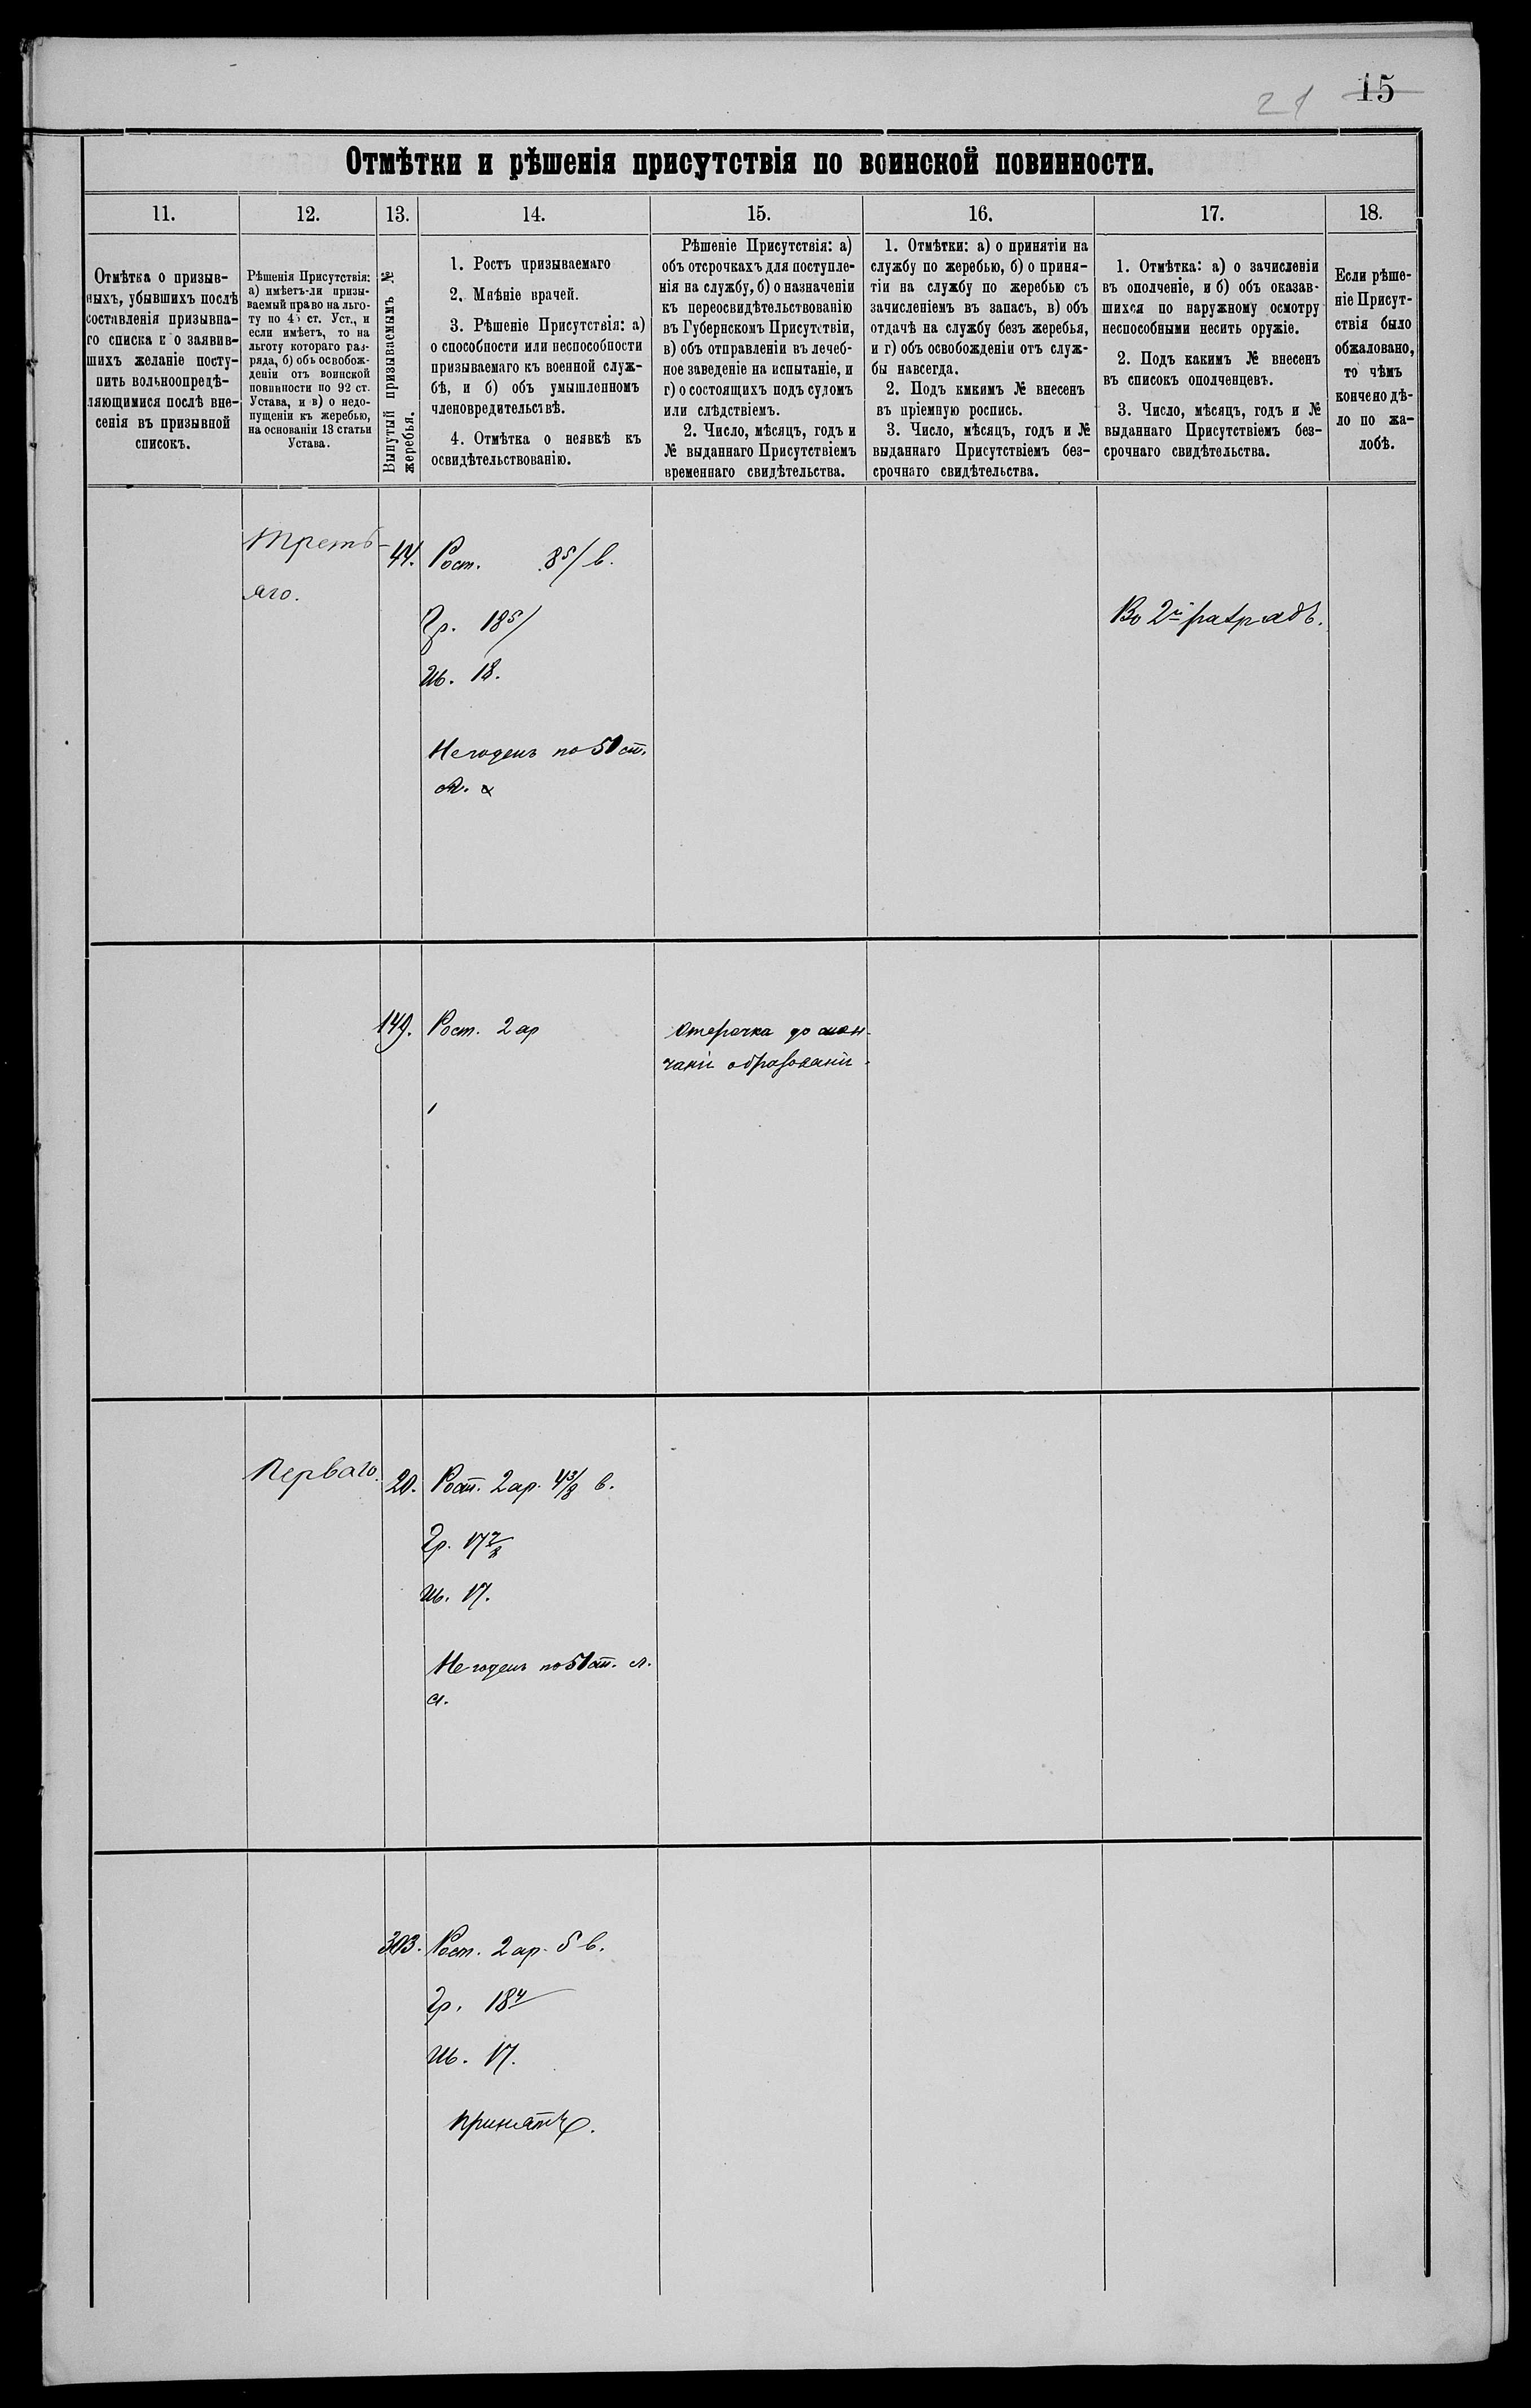 21 15
Отмѣтки и рѣшенія присутствія по воинской повинности.
11.
12.
13.
14.
15.
16.
17.
18.
Отмѣтка о призыв-
ныхъ, убывшихъ послѣ
составленія призывна-
го списка и о заявив-
шихъ желаніе посту-
пить вольноопредѣ-
ляющимися послѣ вне-
сенія въ призывной
списокъ.
Рѣшенія Присутствія:
а) имѣетъ-ли призы-
ваемый право на льго-
ту по 45 ст. Уст., и
если имѣетъ, то на
льготу котораго раз-
ряда, б) объ освобож-
деніи отъ воинской
повинности по 92 ст.
Устава, и в) о недо-
пущеніи къ жеребью,
на основаніи 13 статьи
Устава.
Вынутый призываемымъ №
жеребья.
1. Ростъ призываемаго
2. Мнѣніе врачей.
3. Рѣшеніе Присутствія: а)
о способности или неспособности
призываемаго къ военной служ-
бѣ, и б) объ умышленномъ
членовредительствѣ.
4. Отмѣтка о неявкѣ къ
освидѣтельствованію.
Рѣшеніе Присутствія: а)
объ отсрочкахъ для поступле-
нія на службу, б) о назначеніи
къ переосвидѣтельствованію
въ Губернскомъ Присутствіи,
в) объ отправленіи въ лечеб-
ное заведеніе на испытаніе, и
г) о состоящихъ подъ судомъ
или слѣдствіемъ.
2. Число, мѣсяцъ, годъ и
№ выданнаго Присутствіемъ
временнаго свидѣтельства.
1. Отмѣтки: а) о принятіи на
службу по жеребью, б) о приня-
тіи на службу по жеребью съ
зачисленіемъ въ запасъ, в) объ
отдачѣ на службу безъ жеребья,
и г) объ освобожденіи отъ служ-
бы навсегда.
2. Подъ кмкимъ № внесенъ
въ пріемную роспись.
3. Число, мѣсяцъ, годъ и №
выданнаго Присутствіемъ без-
срочнаго свидѣтельства.
1. Отмѣтка: а) о зачисленіи
въ ополченіе, и б) объ оказав-
шихся по наружному осмотру
неспособными несить оружіе.
2. Подъ какимъ № внесенъ
въ списокъ ополченцевъ.
3. Число, мѣсяцъ, годъ и №
выданнаго Присутствіемъ без-
срочнаго свидѣтельства.
Если рѣше-
ніе Присут-
ствія было
обжаловано,
то чѣмъ
кончено дѣ-
ло по жа-
лобѣ.
Треть-
яго.
44.
Рост. 8 5/ в.
Гр. 18 5/
Ив. 18.
Негоденъ по 51 ст.
Во 2й разрядъ.
149.
Рост. 2 ар
Отсрочка до окон-
чанія образованія.
Перваго.
20.
Рост. 2 ар. 4 3/8 в.
Гр. 17 7/8
Ив. 17.
Негоденъ по 51 ст. л.
а.
303.
Рост. 2 ар. 5 в.
Гр. 18 4/
Ив. 17.
Принятъ.